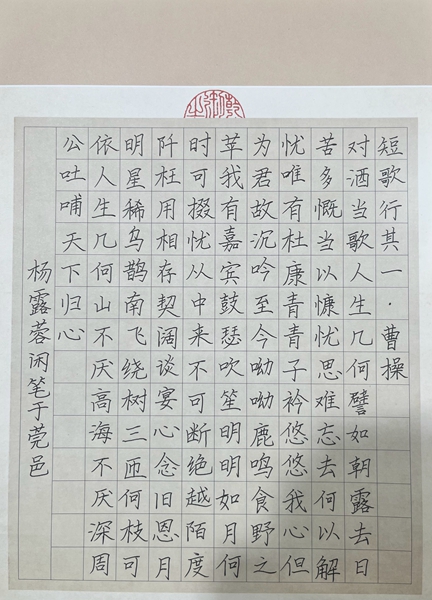 短歌行其一·曹操
对酒当歌人生几何譬如朝露去日
苦多慨当以慷忧思难忘去何以解
忧唯有杜康青青子衿悠悠我心但
为君故沉吟至今呦呦鹿鸣食野之
苹我有嘉宾鼓瑟吹笙明明如月何
时可掇忧从中来不可断绝越陌度
阡枉用相存契阔谈宴心念旧恩月
明星稀乌鹊南飞绕树三匝何枝可
依人生几何山不厌高海不厌深周
公吐哺天下归心
杨露蓉闲笔于莞邑